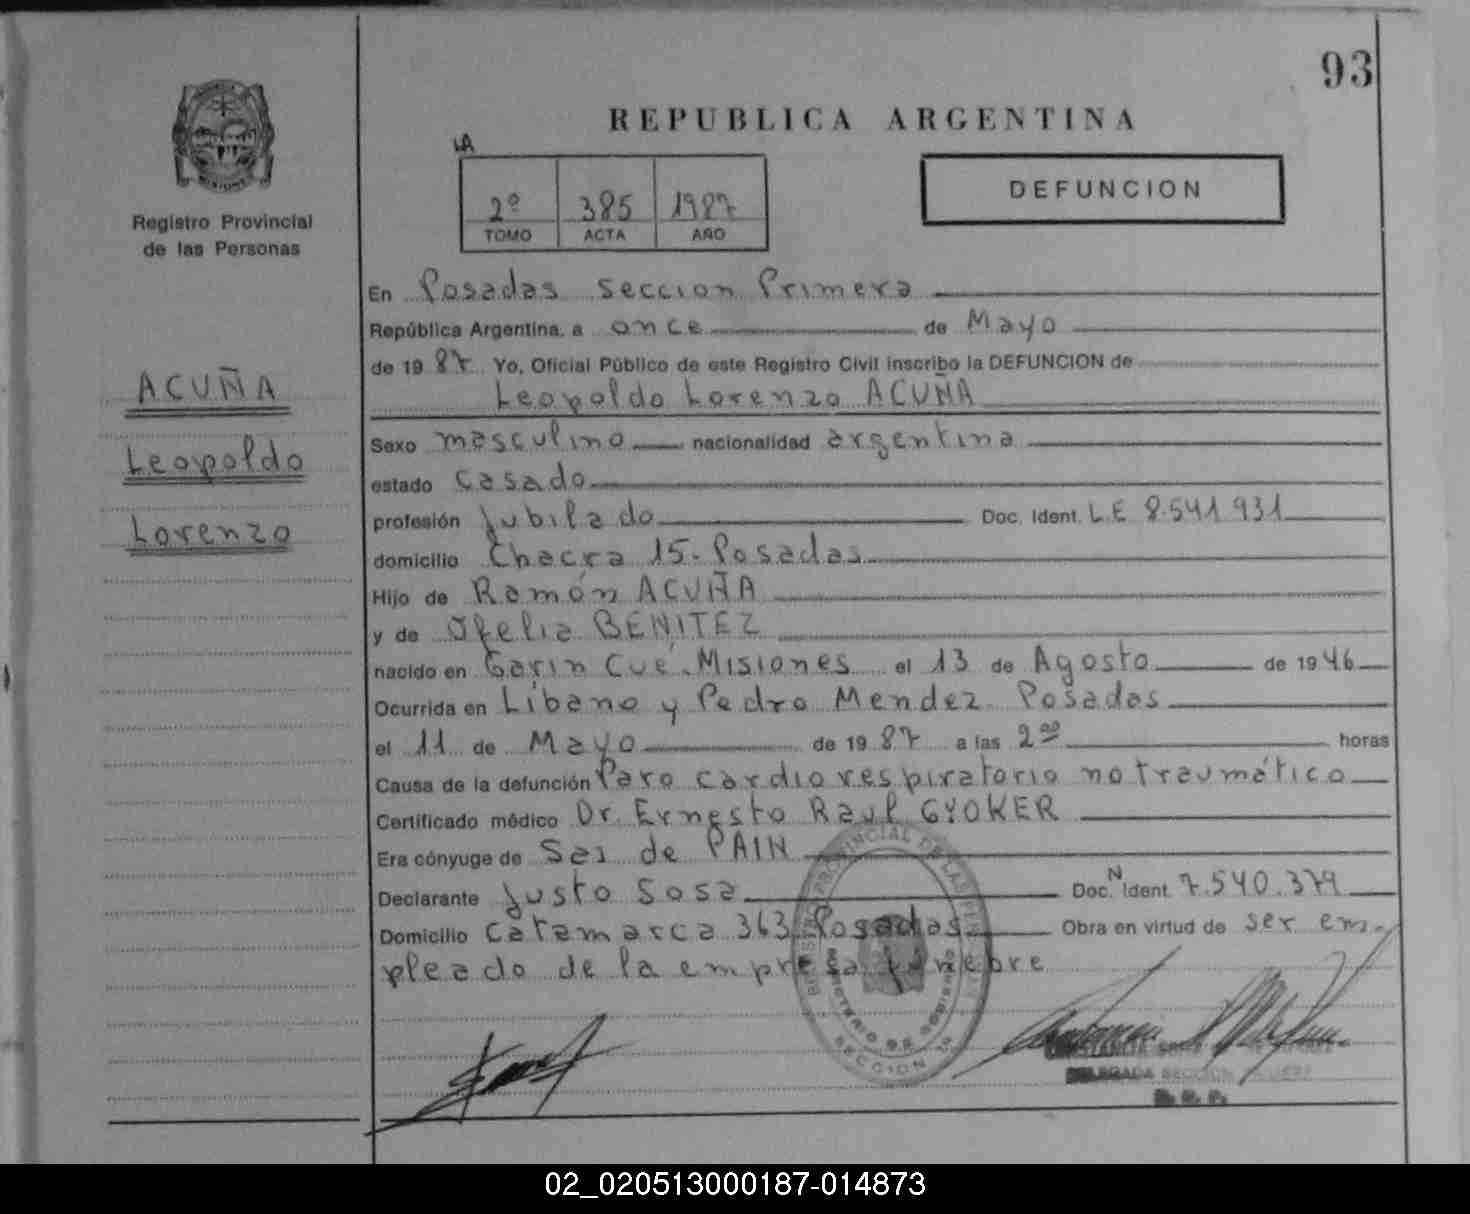 93
REPUBLICA ARGENTINA
LA
DEFUNCION
2º 385 1987
TOMO ACTA AÑO
MISIONES
Registro Provincial
de las Personas
ACUÑA
Leopoldo
Lorenzo
En Posadas Seccion Primera
República Argentina, a once de Mayo
de 19 87 Yo, Oficial Público de este Registro Civil inscribo la DEFUNCION de
Leopoldo Lorenzo ACUÑA
Sexo masculino nacionalidad argentina
estado casado
profesión jubilado Doc. Ident. L.E 8.541.931
domicilio Chacra 15-Posadas
Hijo de Ramón ACUÑA
y de Ofelia BENITEZ
nacido en Garin Cué-Misiones el 13 de Agosto de 1946
Ocurrida en Líbano y Pedro Mendez Posadas
el 11 de Mayo de 19 87 a las 2⁰⁰ horas
Causa de la defunción Paro cardiorespiratorio no traumático
Certificado médico Dr. Ernesto Raul GYOKER
Era cónyuge de Sai de PAIN
Declarante Justo Sosa Doc. N Ident. 7.540.379
Domicilio Catamarca 363 Posadas Obra en virtud de ser em-
pleado de la empresa fúnebre
REGISTRO PROVINCIAL DE LAS PERSONAS
MINISTERIO DE GOBIERNO
SECCION 1a
DELEGADA SECCION PRIMERA
02_020513000187-014873